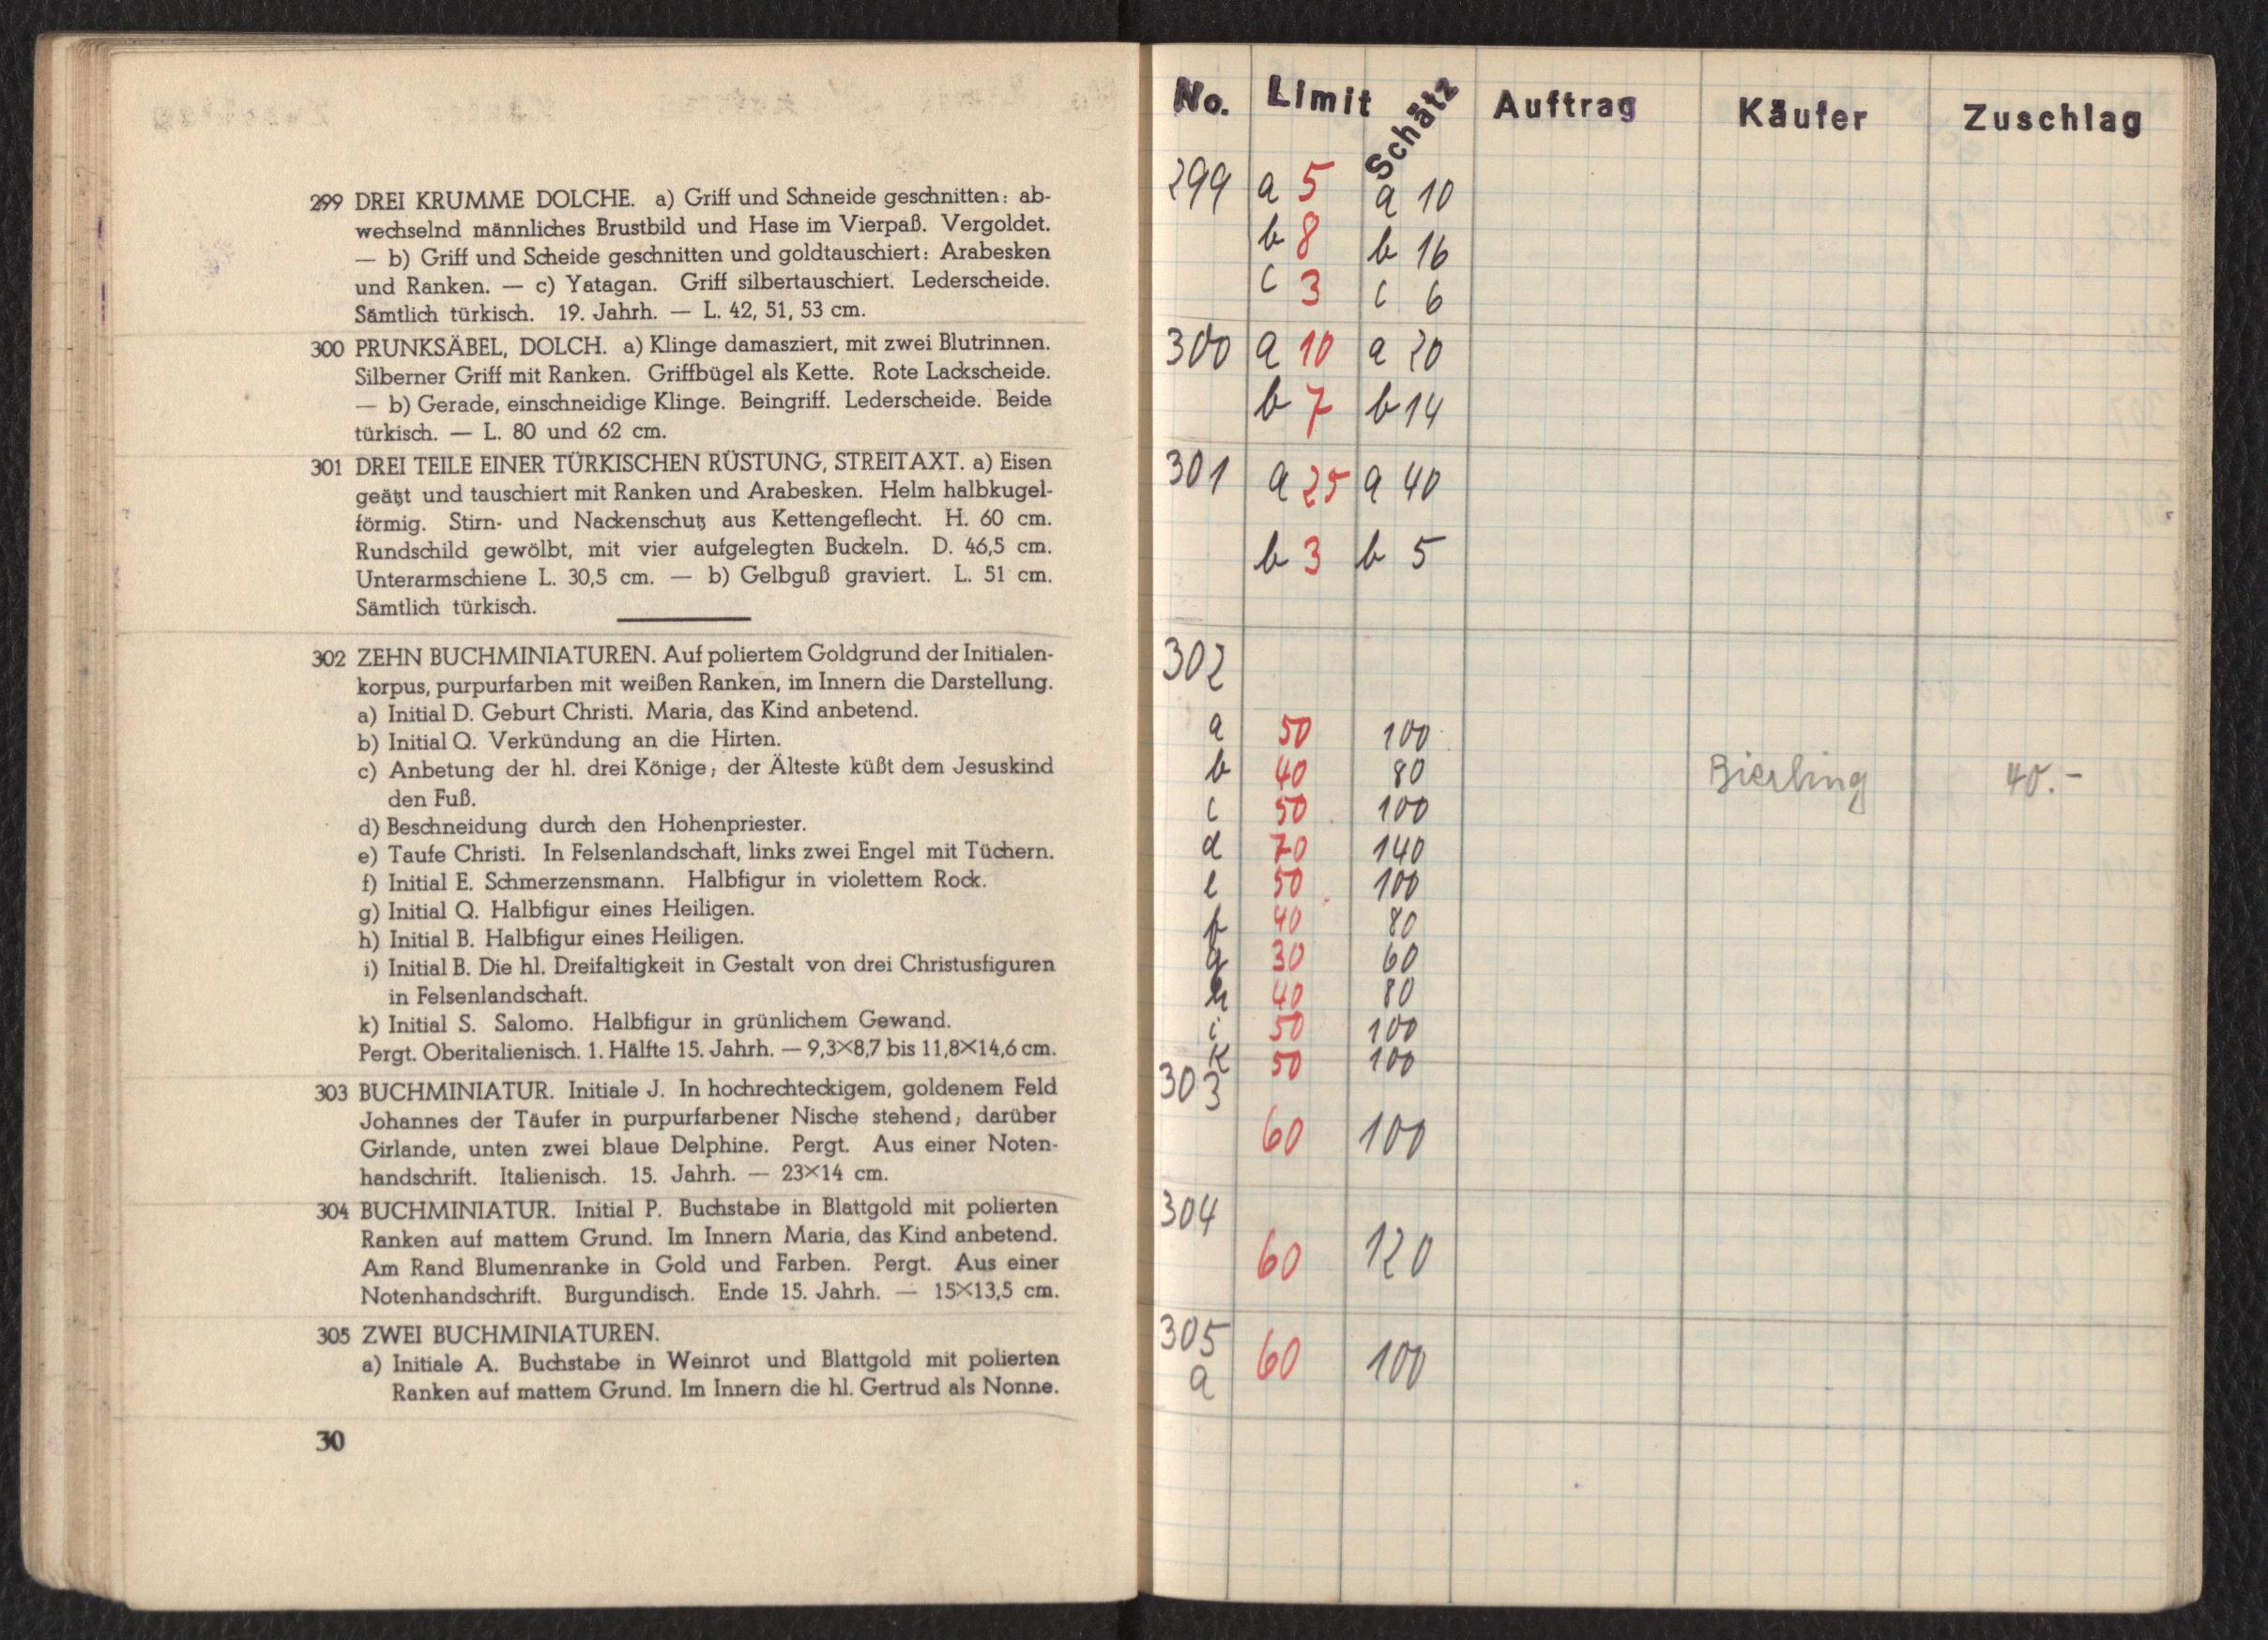 299 DREI KRUMME DOLCHE. a) Griff und Schneide geschnitten: ab-
wechselnd männliches Brustbild und Hase im Vierpaß. Vergoldet.
— b) Griff und Scheide geschnitten und goldtauschiert: Arabesken
und Ranken. — c) Yatagan. Griff silbertauschiert. Lederscheide.
Sämtlich türkisch. 19. Jahrh. — L. 42, 51, 53 cm.
300 PRUNKSÄBEL, DOLCH. a) Klinge damasziert, mit zwei Blutrinnen.
Silberner Griff mit Ranken. Griffbügel als Kette. Rote Lackscheide.
— b) Gerade, einschneidige Klinge. Beingriff. Lederscheide. Beide
türkisch. — L. 80 und 62 cm.
301 DREI TEILE EINER TÜRKISCHEN RÜSTUNG, STREITAXT. a) Eisen
geätzt und tauschiert mit Ranken und Arabesken. Helm halbkugel-
förmig. Stirn- und Nackenschutz aus Kettengeflecht. H. 60 cm.
Rundschild gewölbt, mit vier aufgelegten Buckeln. D. 46,5 cm.
Unterarmschiene L. 30,5 cm. — b) Gelbguß graviert. L. 51 cm.
Sämtlich türkisch.
302 ZEHN BUCHMINIATUREN. Auf poliertem Goldgrund der Initialen-
korpus, purpurfarben mit weißen Ranken, im Innern die Darstellung.
a) Initial D. Geburt Christi. Maria, das Kind anbetend.
b) Initial Q. Verkündung an die Hirten.
c) Anbetung der hl. drei Könige; der Älteste küßt dem Jesuskind
den Fuß.
d) Beschneidung durch den Hohenpriester.
e) Taufe Christi. In Felsenlandschaft, links zwei Engel mit Tüchern.
f) Initial E. Schmerzensmann. Halbfigur in violettem Rock.
g) Initial Q. Halbfigur eines Heiligen.
h) Initial B. Halbfigur eines Heiligen.
i) Initial B. Die hl. Dreifaltigkeit in Gestalt von drei Christusfiguren
in Felsenlandschaft.
k) Initial S. Salomo. Halbfigur in grünlichem Gewand.
Pergt. Oberitalienisch. 1. Hälfte 15. Jahrh. — 9,3×8,7 bis 11,8×14,6 cm.
303 BUCHMINIATUR. Initiale J. In hochrechteckigem, goldenem Feld
Johannes der Täufer in purpurfarbener Nische stehend; darüber
Girlande, unten zwei blaue Delphine. Pergt. Aus einer Noten-
handschrift. Italienisch. 15. Jahrh. — 23×14 cm.
304 BUCHMINIATUR. Initial P. Buchstabe in Blattgold mit polierten
Ranken auf mattem Grund. Im Innern Maria, das Kind anbetend.
Am Rand Blumenranke in Gold und Farben. Pergt. Aus einer
Notenhandschrift. Burgundisch. Ende 15. Jahrh. — 15×13,5 cm.
305 ZWEI BUCHMINIATUREN.
a) Initiale A. Buchstabe in Weinrot und Blattgold mit polierten
Ranken auf mattem Grund. Im Innern die hl. Gertrud als Nonne.
30
No. Limit Schätz Auftrag Käufer Zuschlag
299 a 5 a 10
b 8 b 16
c 3 c 6
300 a 10 a 20
b 7 b 14
301 a 25 a 40
b 3 b 5
302
a 50 100
b 40 80 Bierling 40.-
c 50 100
d 70 140
e 50 100
f 40 80
g 30 60
h 40 80
i 50 100
k 50 100
303
60 100
304
60 120
305
a 60 100